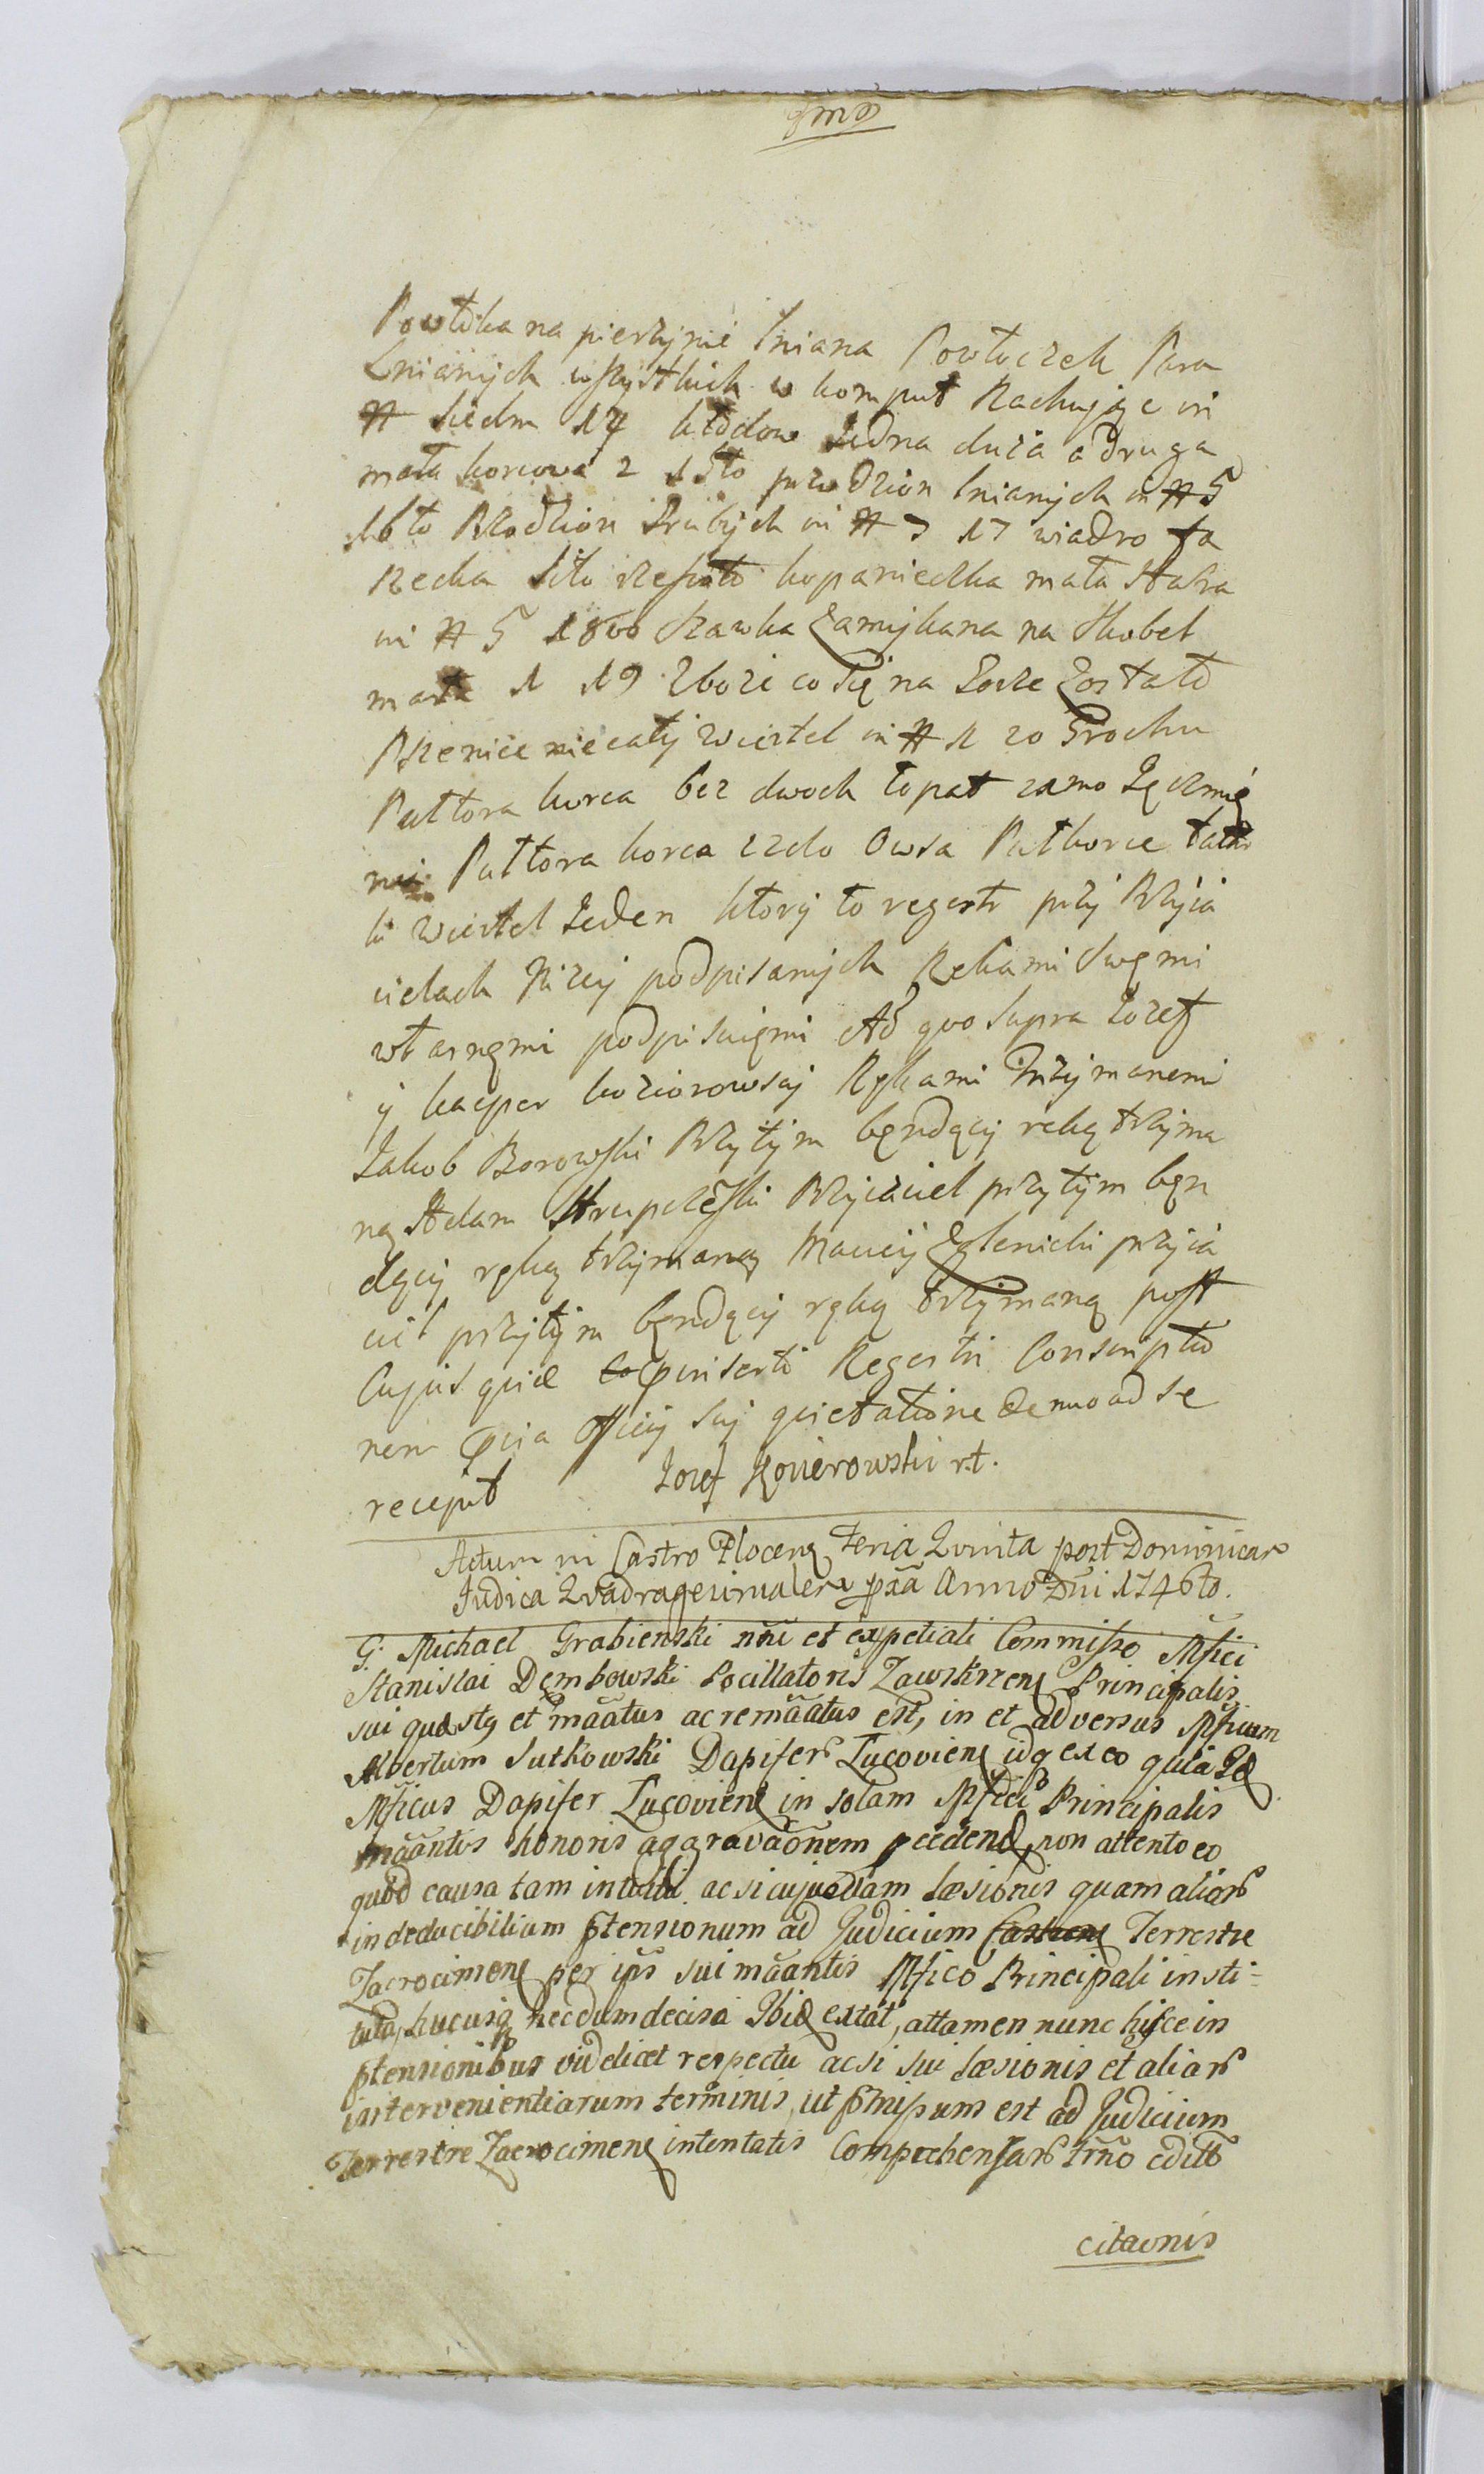 Powłoka na pierzynie lniana Powłoczek Para
Lnianych wszystkich w komput Rachując in
# siedm 14 kłodow Jedna duza a druga
mała korcowa 2 15to przędzion lnianych in # 5
16to Przędzion Grubych in # 3 17 wiadro fa
rzecka Sito rzeszoto kopanieczka mała stara
in # 5 18vo skawka zamykana na skobel
mała 1 19 Zboże co się na Gorze zostało
Pszenice niecały wiertel in # 1 20 Grochu
Pułtora korca bez dwoch łopat samo Jęczmię
nia Pułtora korca szło Owsa Pułkorce tatar
ki wiertel Jeden ktory to regestr przy Przyia
cielach Nizey podpisanych Rękami swęmi
własnęmi podpisuięmi Ad quo supra Jozef
y kacper koziorowscy Rękami Trzymanemi
Jakob Borowski Przytym będący ręką trzyma
ną Adam Strupczęski Przyiaciel przytym będ
dący ręką trzymaną Maciey Zglenicki przyia
ciel przytym będący ręką trzymaną post
Cujus quid inserti Regestri Conscriptio
nem offici sui quietatione denuo ad se
recepit Jozef Kozierowski r.t.
Actum in Castro Plocen Feria Quinta post Dominicam
Judica Quadragesimalem pxa Anno Dni 1746to.
G. Michael Grabienski nni et expetiali Commisso Mfici
Stanislai Dembowski Pocillatoris Zawskrzen Principalis
sui questq et maatus ac remaatus est, in et adversus Mficum
Albertum Sutkowski Dapifer Lucovien idq ex eo quia Id
Mficus Dapifer Lucovien in solam Mfici Principalis
maantis honoris aggravaonem pcedend, non attento eo
quod causa tam intuitu ac si cujusdam læsionis quam alior
in deducibilium ptensionum ad Judicium Castren Terrestre
Zacrocimen per ips sui maantis Mfico Principali insti=
tuta, hucusq necdum decisa Ibid extat, attamen nunc hisce in
ptensionibus videlicet respectu ac si sui læsionis et aliar
intervenientiarum terminis, ut pmissum est ad Judicium
Terrestre Zacrocimen intentatis Comprehensar Trno edito
citaonis